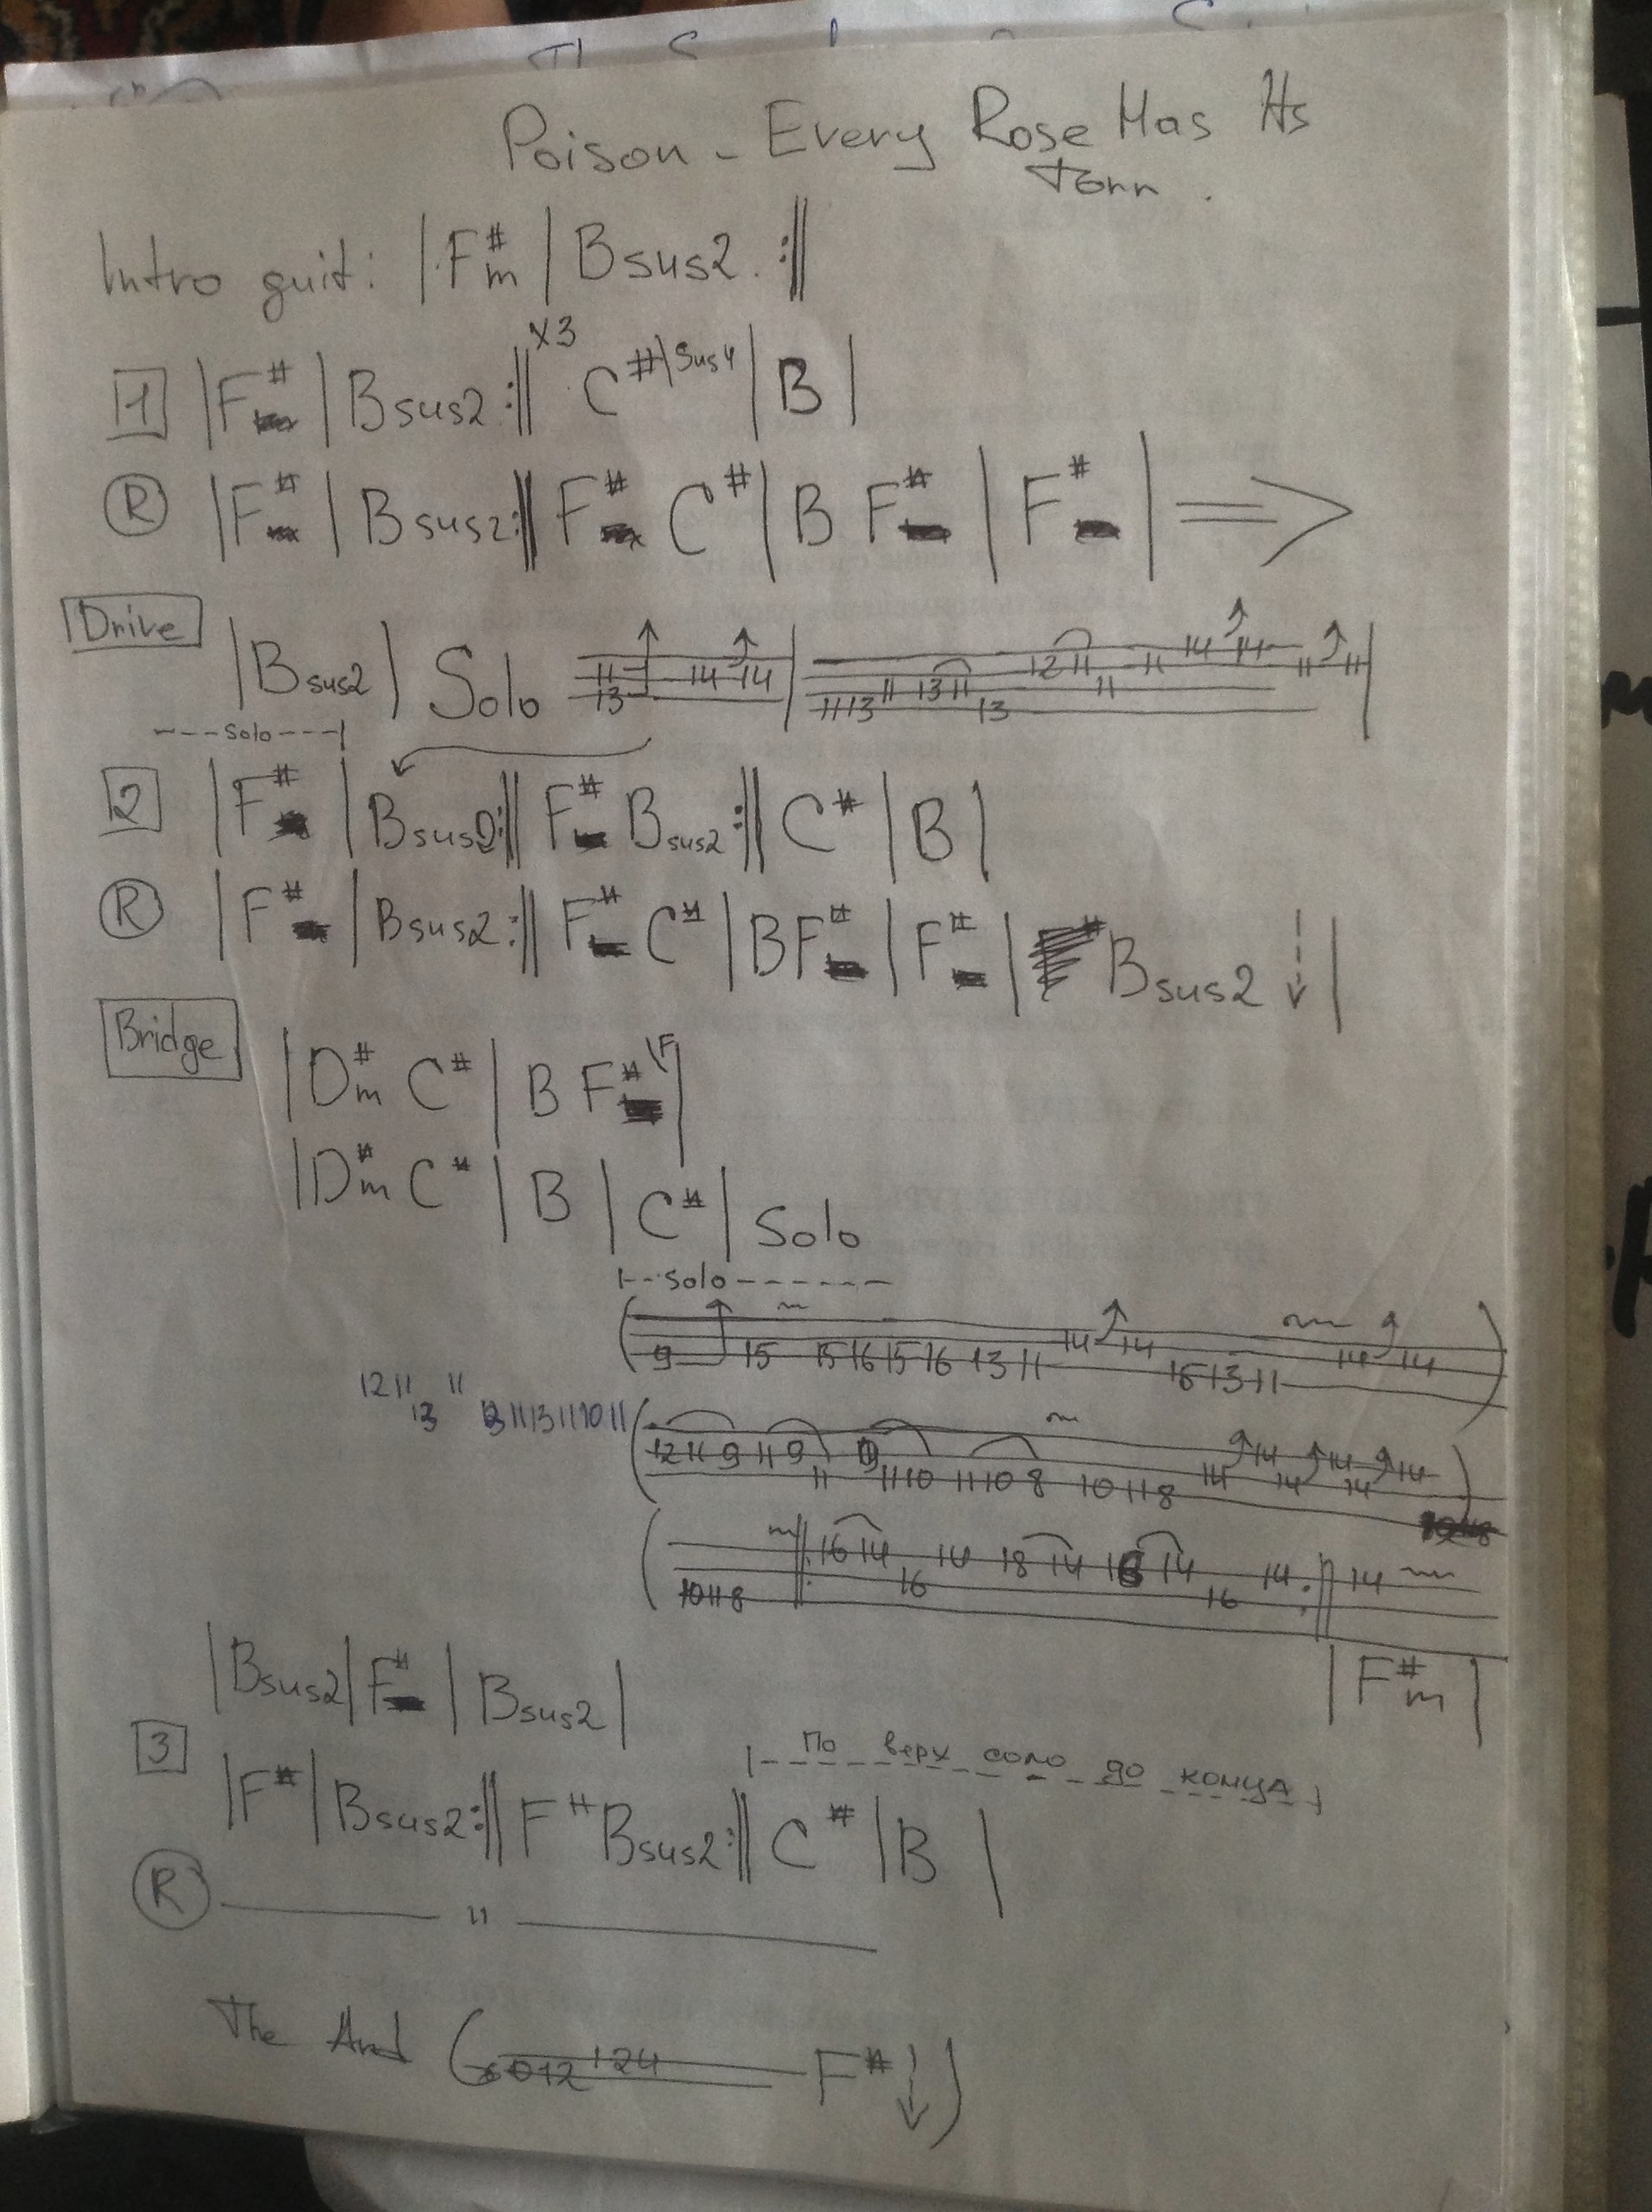 Poison - Every Rose Has Its
Torn.
Intro guit: | F#m | Bsus2 :||
1 | F# | Bsus2 :|| x3 C#|sus4 | B |
R | F# | Bsus2 :|| F# C# | B F# | F# | ⇒
Drive | Bsus2 | Solo 11 13 14 14 | 11 13 11 13 11 13 12 11 11 11 14 14 11 11 |
---solo---|
2 | F# | Bsus2 :|| F# Bsus2 :|| C# | B |
R | F# | Bsus2 :|| F# C# | B F# | F# | Bsus2 ↓ |
Bridge | D#m C# | B F# \F |
| D#m C# | B | C# | Solo
|--solo------
( 9 15 15 16 15 16 13 11 14 14 16 13 11 14 14 )
12 11 13 11 13 11 13 11 10 11 ( 12 11 9 11 9 11 9 11 10 11 10 8 10 11 8 14 14 14 14 14 14 )
( 10 11 8 ||: 16 14 16 14 18 14 16 14 16 14 :|| 14
| F#m |
| Bsus2 | F# | Bsus2 |
3 |-- По верх соло до конца --|
| F# | Bsus2 :|| F# Bsus2 :|| C# | B |
R ——— " ———
The And ( 0 1 2 1 2 4 — F# ↓ )